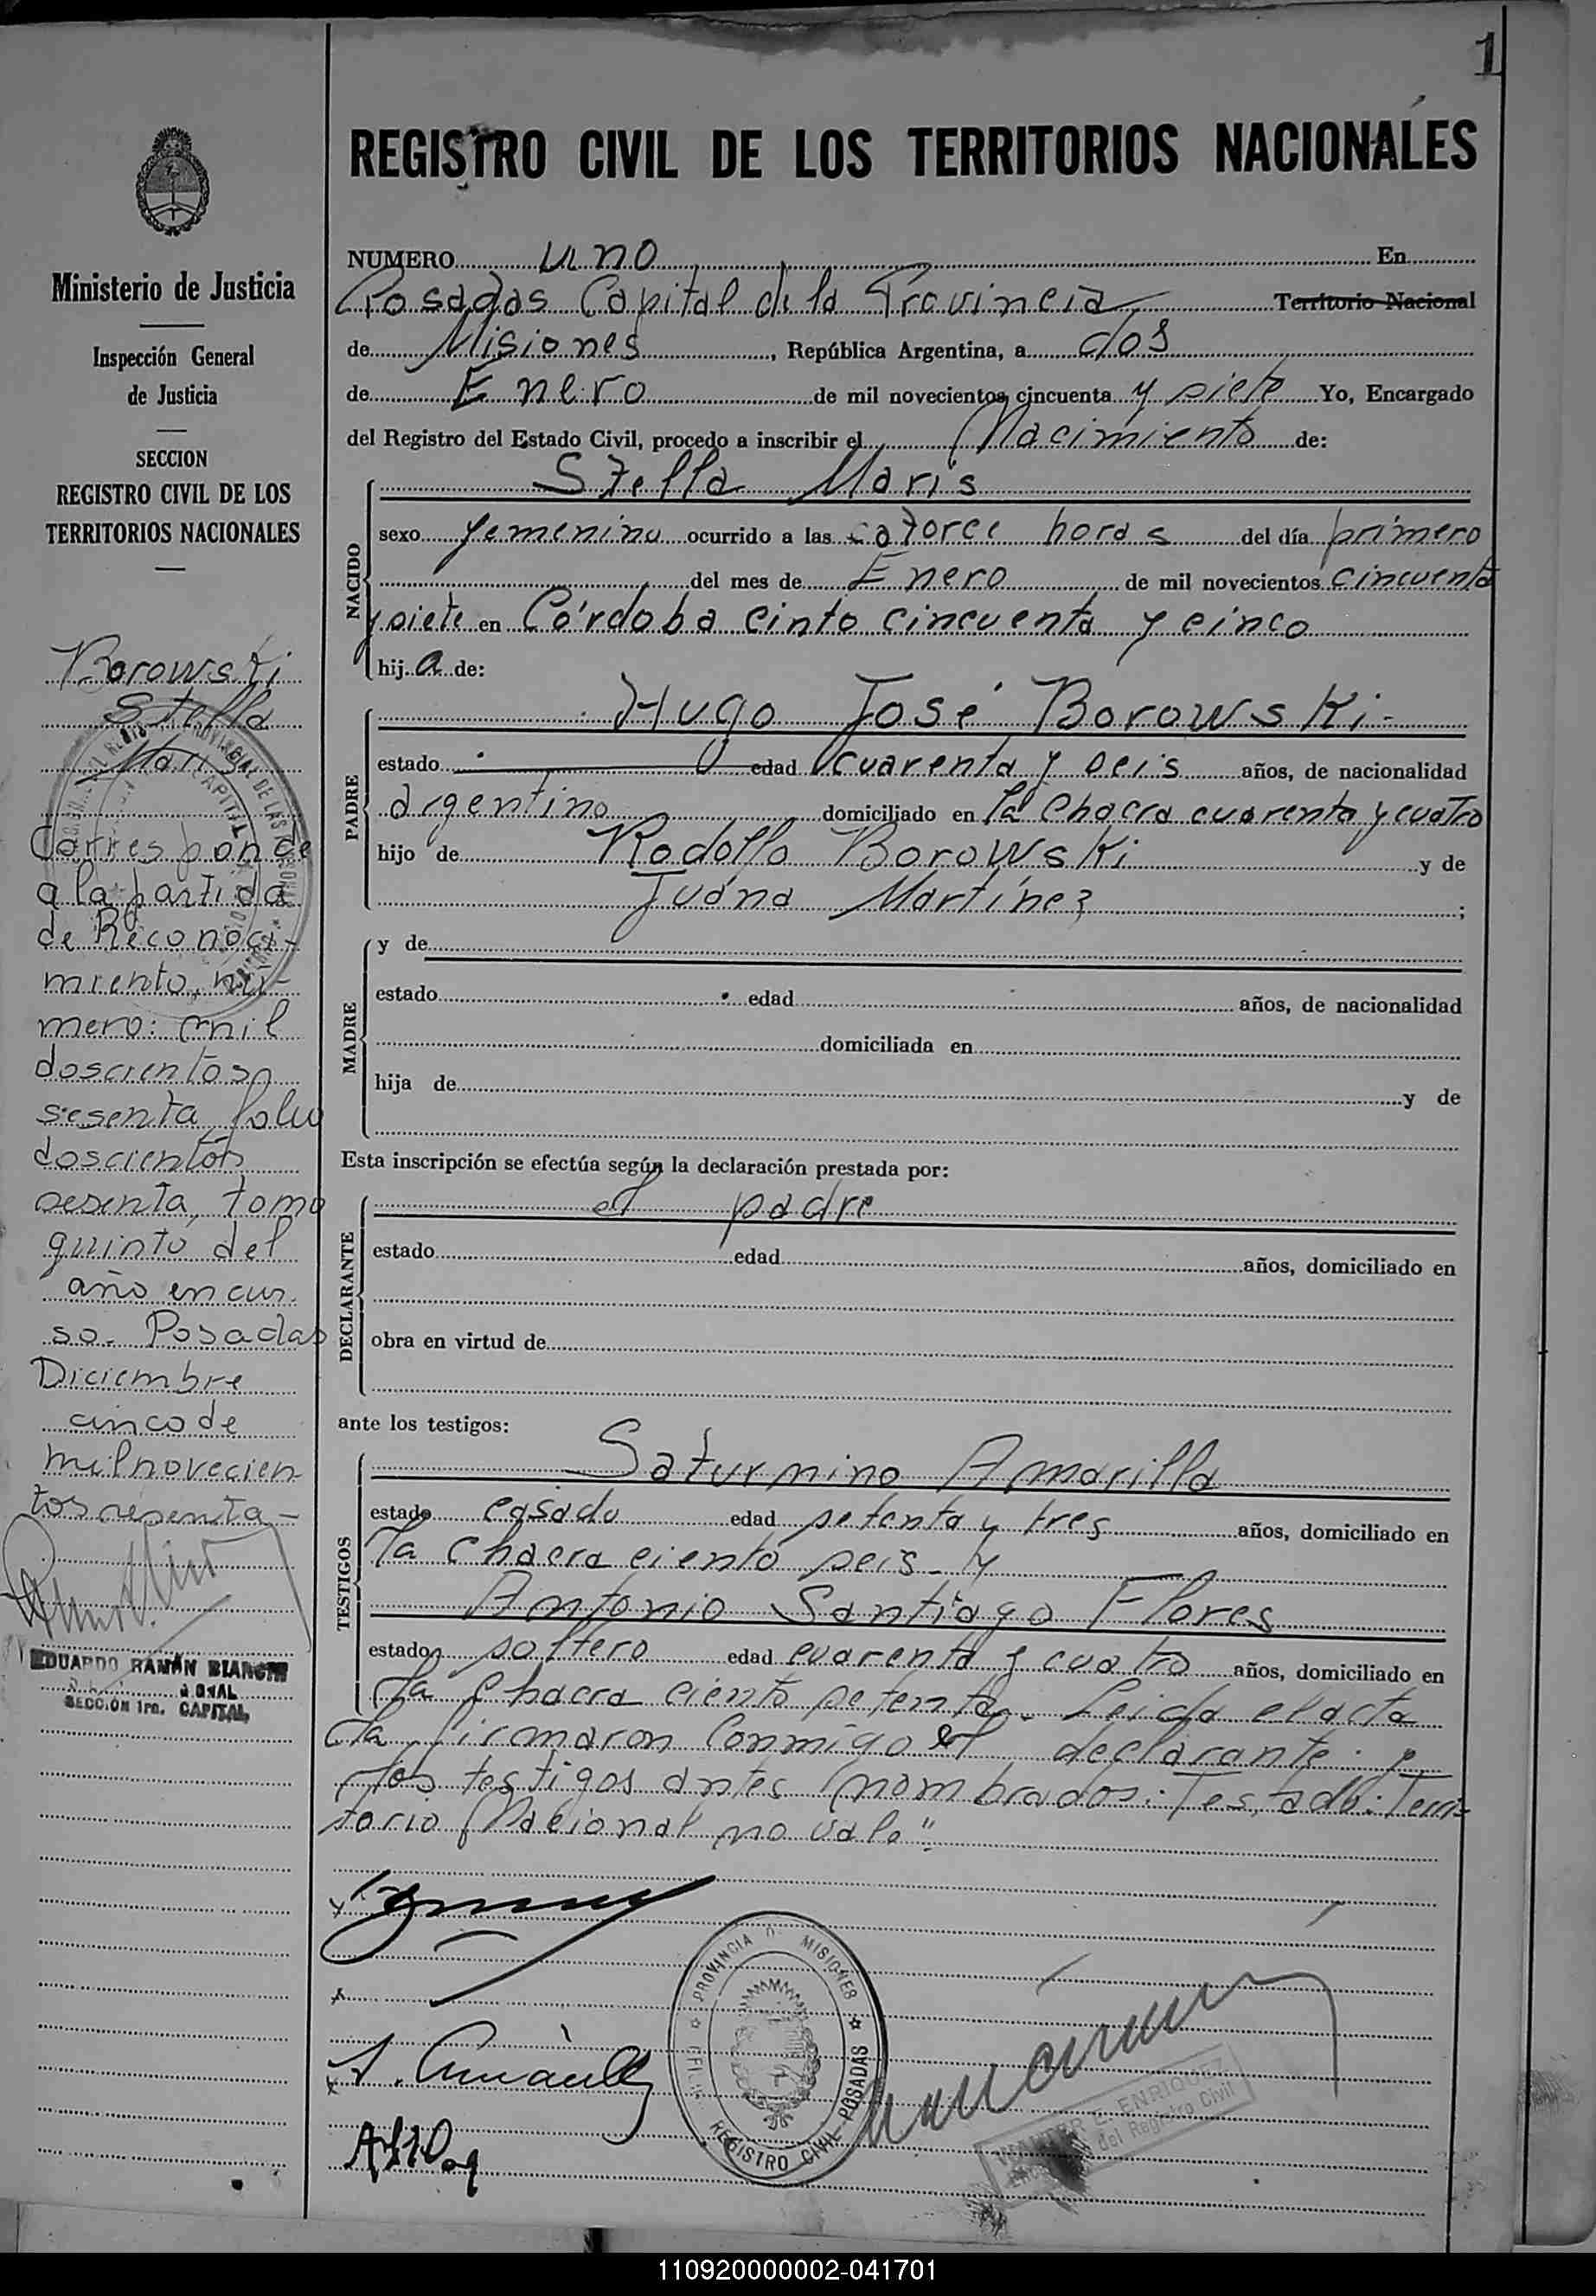 1
REGISTRO CIVIL DE LOS TERRITORIOS NACIONALES
Ministerio de Justicia
Inspección General
de Justicia
SECCION
REGISTRO CIVIL DE LOS
TERRITORIOS NACIONALES
Borowski
Stella
Maris
Corresponde
a la partida
de Reconoci-
miento, nú-
mero: mil
doscientos
sesenta, folio
doscientos
sesenta, tomo
quinto del
año en cur-
so. Posadas
Diciembre
cinco de
mil novecien
tos sesenta-
EDUARDO RAMÓN BIANCHI
SECCION 1ra. CAPITAL
NUMERO uno En
Posadas Capital de la Provincia Territorio Nacional
de Misiones, República Argentina, a dos
de Enero de mil novecientos cincuenta y siete Yo, Encargado
del Registro del Estado Civil, procedo a inscribir el Nacimiento de:
NACIDO
Stella Maris
sexo femenino ocurrido a las catorce horas del día primero
del mes de Enero de mil novecientos cincuenta
y siete en Córdoba cinto cincuenta y cinco
hija de:
PADRE
Hugo José Borowski-
estado edad cuarenta y seis años, de nacionalidad
argentino domiciliado en la chacra cuarenta y cuatro
hijo de Rodolfo Borowski y de
Juana Martínez;
MADRE
y de
estado edad años, de nacionalidad
domiciliada en
hija de y de
Esta inscripción se efectúa según la declaración prestada por:
DECLARANTE
el padre
estado edad años, domiciliado en
obra en virtud de
ante los testigos:
TESTIGOS
Saturnino Amarilla
estado casado edad setenta y tres años, domiciliado en
la chacra ciento seis- y
Antonio Santiago Flores
estado soltero edad cuarenta y cuatro años, domiciliado en
la chacra ciento setenta- Leida el acta
la firmaron conmigo el declarante y
los testigos antes nombrados: Testado: Terri-
torio Nacional no vale"
PROVINCIA DE MISIONES
REGISTRO CIVIL POSADAS
WALTER E. ENRIQUEZ
del Registro Civil
110920000002-041701